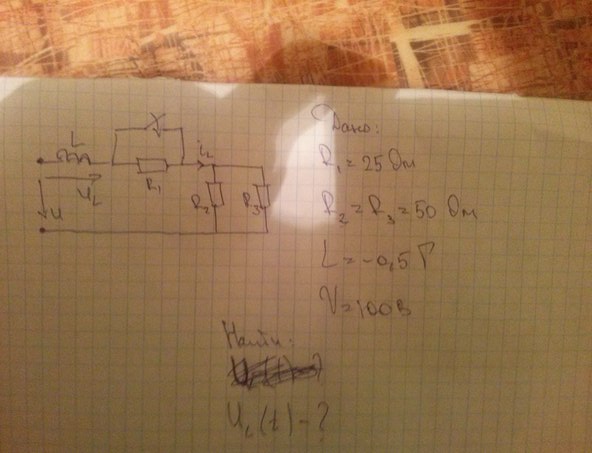 L
U_L
U
R₁
i_L
R₂
R₃
Дано:
R₁ = 25 Ом
R₂ = R₃ = 50 Ом
L = -0,5 Г
V = 100 В
Найти:
U_L(t) - ?